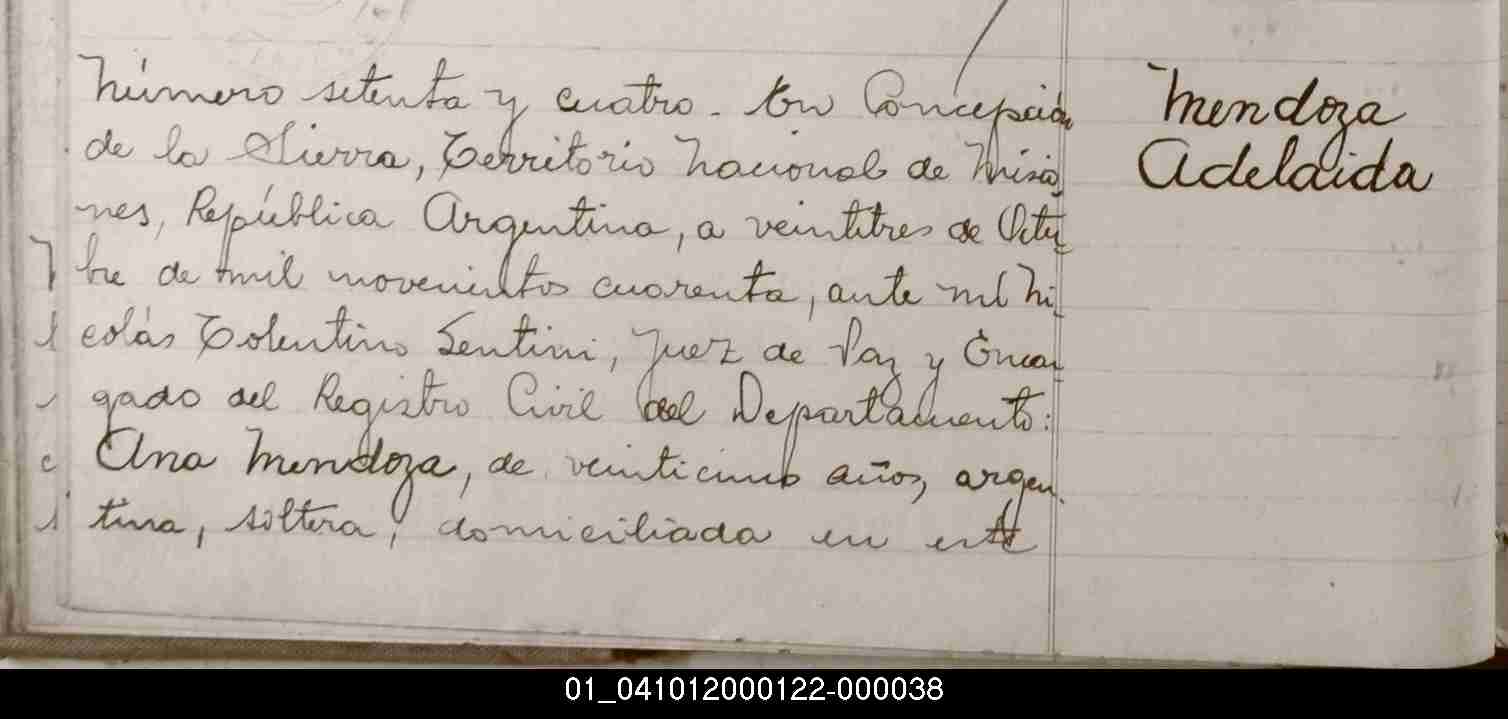 Número setenta y cuatro. En Concepción
de la Sierra, Territorio Nacional de Misio_
nes, República Argentina, a veintitres de Octu_
bre de mil novecientos cuarenta, ante mí Ni_
colás Tolentino Sentini, Juez de Paz y Encar_
gado del Registro Civil del Departamento:
Ana Mendoza, de veinticinco años, argen_
tina, soltera, domiciliada en este
Mendoza
Adelaida
01_041012000122-000038